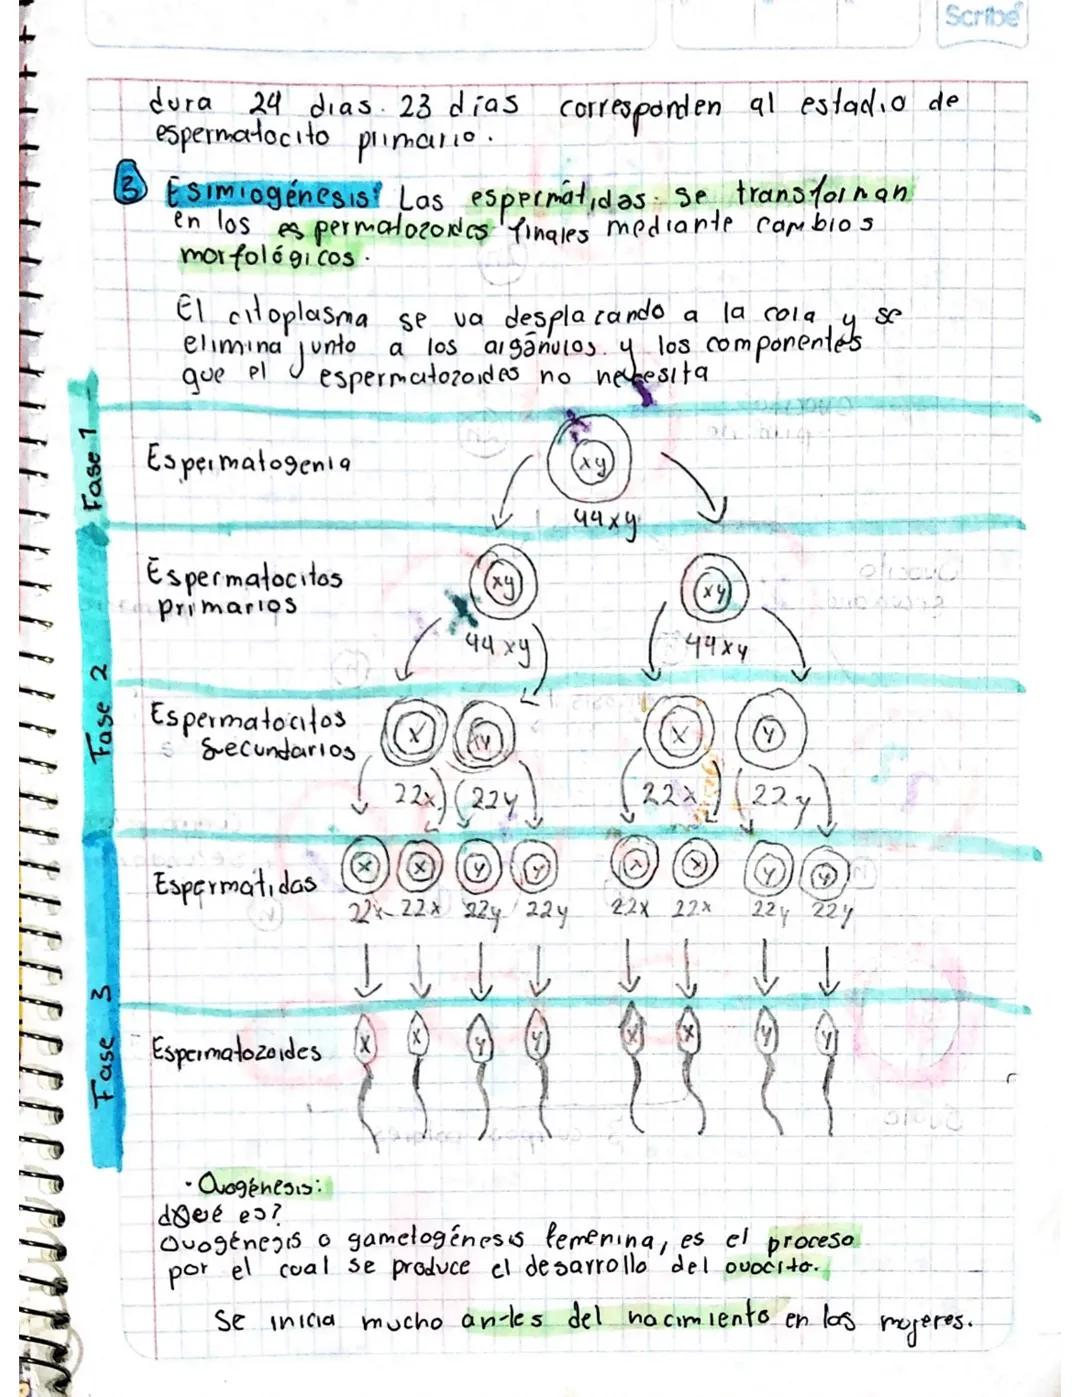 Scribe
dura 24 dias. 23 dias corresponden al estadio de
espermatocito primario.
3 Esimiogénesis: Las espermátidas se transforman
en los espermatozoides finales mediante cambios
morfológicos.
El citoplasma se va desplazando a la cola y se
elimina junto a los argánulos y los componentes
que el espermatozoides no necesita
Fase 1
Espermatogenia
xy
44xy
Fase 2
Espermatocitos
primarios
xy xy
44xy 44xy
Espermatocitos
secundarios
X y X y
22x 22y 22x 22y
Fase 3
Espermátidas
X X y y X X y y
22x 22x 22y 22y 22x 22x 22y 22y
Espermatozoides
X X y y X X y y
· Ovogénesis:
¿Qué es?
Ovogénesis o gametogénesis femenina, es el proceso
por el cual se produce el desarrollo del ovocito.
Se inicia mucho antes del nacimiento en las mujeres.